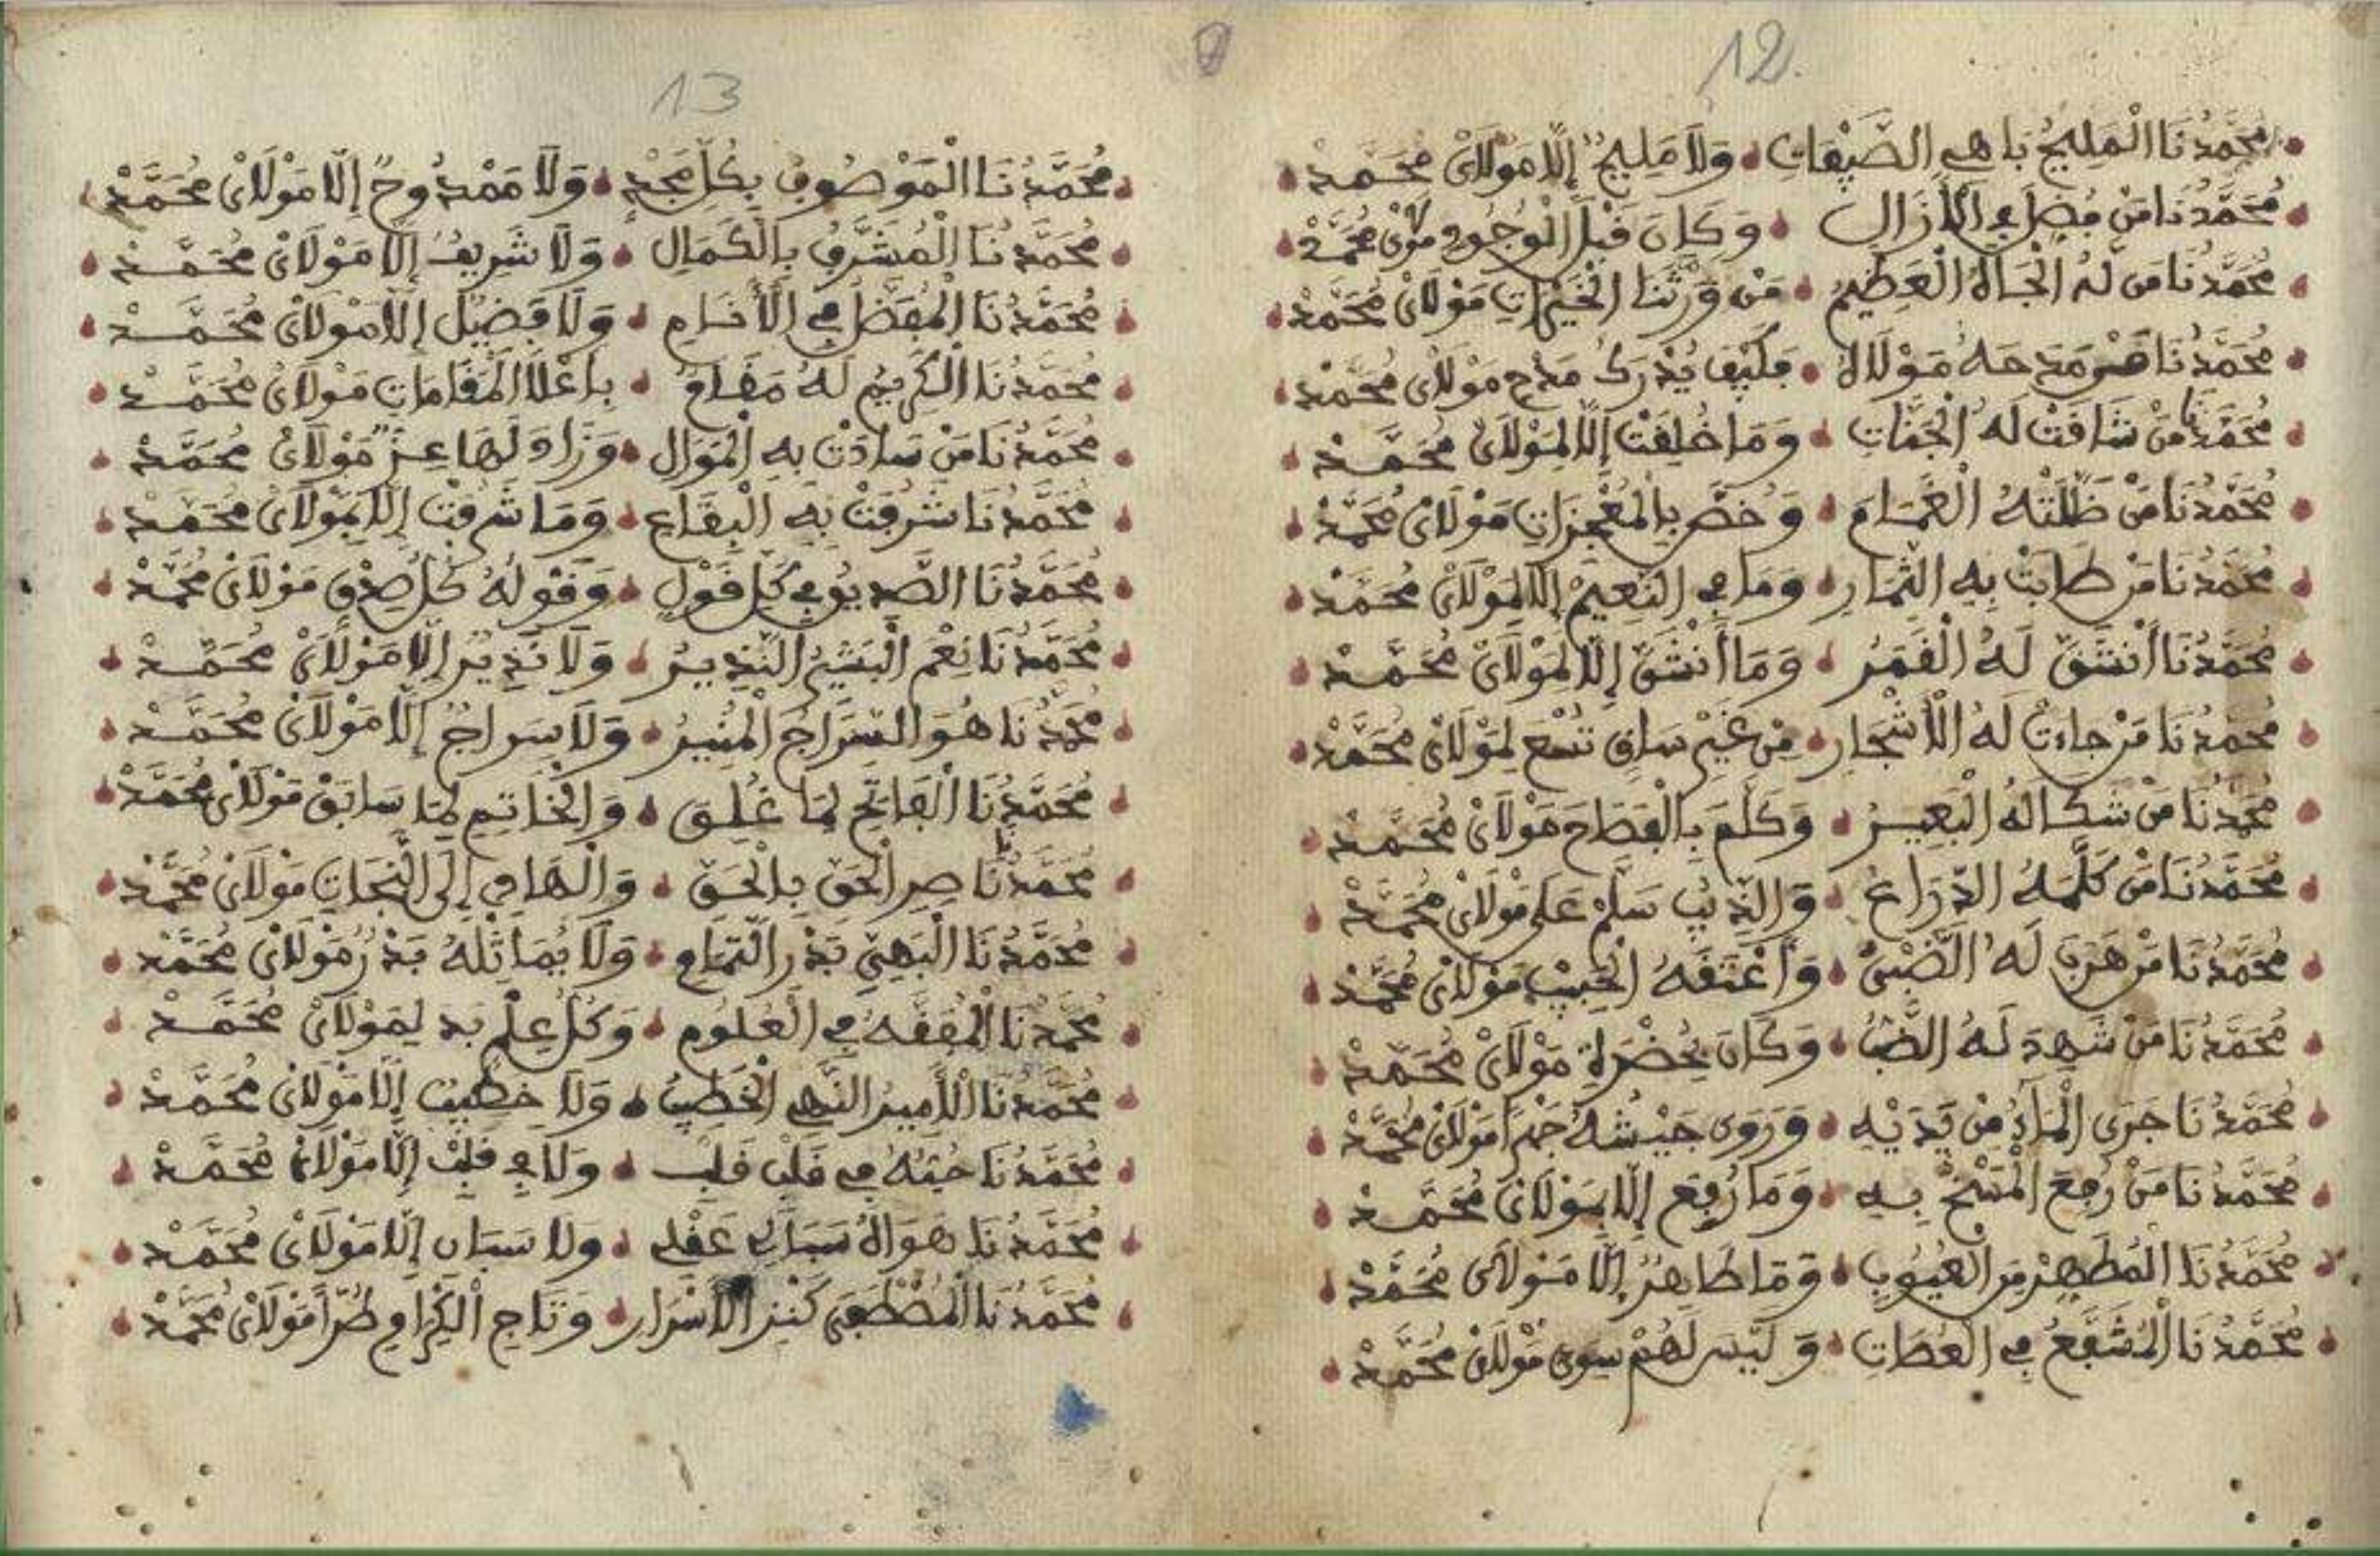 12
مُحَمَّدُنَا الْمَلِيحُ بَاهِي الصِّفَاتِ وَلَا مَلِيحٌ إِلَّا مَوْلَايْ مُحَمَّدْ
مُحَمَّدُنَا مَنْ فُضِّلَ فِي الْأَزَالِ وَكَانَ قَبْلَ الْوُجُودِ مَوْلَايْ مُحَمَّدْ
مُحَمَّدُنَا مَن لَهُ الْجَاهُ الْعَظِيمُ مَنْ وَرَّثَنَا الْخَيْرَاتِ مَوْلَايْ مُحَمَّدْ
مُحَمَّدُنَا مَدَحَهُ مَوْلَاهُ فَكَيْفَ يُدْرَكُ مَدْحِ مَوْلَايْ مُحَمَّدْ
مُحَمَّدُنَا مَنْ شَاقَتْ لَهُ الْجَنَّاتِ وَمَا خُلِقَتْ إِلَّا لِمَوْلَايْ مُحَمَّدْ
مُحَمَّدُنَا مَنْ ظَلَّلَتْهُ الْغَمَامَ وَخُصَّ بِالْمُعْجِزَاتِ مَوْلَايْ مُحَمَّدْ
مُحَمَّدُنَا مَنْ طَابَتْ بِهِ الثِّمَارِ وَمَا فِي النَّعِيمْ إِلَّا لِمَوْلَايْ مُحَمَّدْ
مُحَمَّدُنَا أَنْشَقَّ لَهُ الْقَمَرُ وَمَا أَنْشَقَّ إِلَّا لِمَوْلَايْ مُحَمَّدْ
مُحَمَّدُنَا مَنْ جَاءَتْ لَهُ الْأَشْجَارِ مِنْ غَيْرِ سَاقٍ تَسْعَ لِمَوْلَايْ مُحَمَّدْ
مُحَمَّدُنَا مَنْ شَكَا لَهُ الْبَعِيرُ وَكَلَّمَ بِالْفَصَاحَ مَوْلَايْ مُحَمَّدْ
مُحَمَّدُنَا مَنْ كَلَّمَهُ الذِّرَاعُ وَالذِّيبُ سَلَّمْ عَلَى مَوْلَايْ مُحَمَّدْ
مُحَمَّدُنَا مَنْ هَرَبَ لَهُ الضَّبْيُ وَأَعْتَقَهُ الْحَبِيبْ مَوْلَايْ مُحَمَّدْ
مُحَمَّدُنَا مَنْ شَهِدَ لَهُ الضَّبُّ وَكَانَ بِحُضْرَةِ مَوْلَايْ مُحَمَّدْ
مُحَمَّدُنَا جَرَى الْمَاءُ مِنْ يَدَيْهِ وَرَوَى جَيْشُهُ مَوْلَايْ مُحَمَّدْ
مُحَمَّدُنَا مَنْ رُفِعَ الْمَسْخُ بِهِ وَمَا رُفِعَ إِلَّا بِمَوْلَايْ مُحَمَّدْ
مُحَمَّدُنَا الْمُطَهَّرْ مِنَ الْعُيُوبِ وَمَا طَاهِرٌ إِلَّا مَوْلَايْ مُحَمَّدْ
مُحَمَّدُنَا الْمُشَفَّعُ فِي الْعُصَاتِ وَلَيْسَ لَهُمْ سِوَى مَوْلَايْ مُحَمَّدْ
13
مُحَمَّدُنَا الْمَوْصُوفُ بِكُلِّ مَجْدٍ وَلَا مَمْدُوحٌ إِلَّا مَوْلَايْ مُحَمَّدْ
مُحَمَّدُنَا الْمُشَرَّفُ بِالْكَمَالِ وَلَا شَرِيفُ إِلَّا مَوْلَايْ مُحَمَّدْ
مُحَمَّدُنَا الْمُفَضَّلُ فِي الْأَنَامِ وَلَا فَضِيلٌ إِلَّا مَوْلَايْ مُحَمَّدْ
مُحَمَّدُنَا الْكَرِيمُ لَهُ مَقَامُ بِأَعْلَا الْمَقَامَاتِ مَوْلَايْ مُحَمَّدْ
مُحَمَّدُنَا مَنْ سَادَتْ بِهِ الْمَوَالِ وَزَادَ لَهَا عِزّ مَوْلَايْ مُحَمَّدْ
مُحَمَّدُنَا شَرُفَتْ بِهِ الْبِقَاعِ وَمَا شَرُفَتْ إِلَّا بِمَوْلَايْ مُحَمَّدْ
مُحَمَّدُنَا الصِّدِيقُ فِي كُلِّ قَوْلٍ وَقَوْلُهُ كُلُّ صِدْقٍ مَوْلَايْ مُحَمَّدْ
مُحَمَّدُنَا نِعْمَ الْبَشِيرُ النَّذِيرُ وَلَا نَذِيرٌ إِلَّا مَوْلَايْ مُحَمَّدْ
مُحَمَّدُنَا هُوَ السِّرَاجُ الْمُنِيرُ وَلَا سِرَاجٌ إِلَّا مَوْلَايْ مُحَمَّدْ
مُحَمَّدُنَا الْفَاتِحُ لِمَا غُلِقَ وَالْخَاتِمِ لِمَا سَابَقْ مَوْلَايْ مُحَمَّدْ
مُحَمَّدُنَا نَاصِرِ الْحَقِّ بِالْحَقِّ وَالْهَادِي إِلَى النَّجَاتِ مَوْلَايْ مُحَمَّدْ
مُحَمَّدُنَا الْبَهِيِّ بَدْرِ التَّمَامِ وَلَا يُمَاثِلُهُ بَدْرُ مَوْلَايْ مُحَمَّدْ
مُحَمَّدُنَا الْمُفَقَّهُ فِي الْعُلُومِ وَكُلُّ عِلْمٍ بَدَ لِمَوْلَايْ مُحَمَّدْ
مُحَمَّدُنَا الْأَمِيرُ النَّهِي الْخَطِيبُ وَلَا خَطِيبٌ إِلَّا مَوْلَايْ مُحَمَّدْ
مُحَمَّدُنَا حُبُّهُ فِي قَلْبِ قَلْبِ وَلَا فِي قَلْبْ إِلَّا مَوْلَايْ مُحَمَّدْ
مُحَمَّدُنَا هَوَاهُ سَبَالِي عَقْلِي وَلَا سَبَانِ إِلَّا مَوْلَايْ مُحَمَّدْ
مُحَمَّدُنَا الْمُصْطَفَى كَنْزِ الْأَسْرَارِ وَتَاجِ الْكِرَامِ طُرًّا مَوْلَايْ مُحَمَّدْ